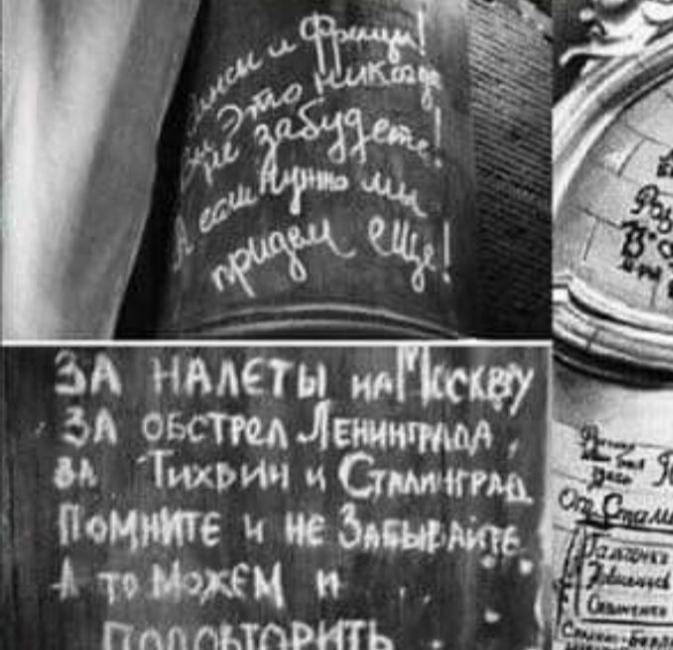 Гансы и Фрицы!
Вы Это никогда
не забудете!
А если Нужно мы
придем еще!
ЗА НАЛЕТЫ НА МОСКВУ
ЗА ОБСТРЕЛ ЛЕНИНГРАДА,
ЗА ТИХВИН И СТАЛИНГРАД
ПОМНИТЕ И НЕ ЗАБЫВАЙТЕ
А ТО МОЖЕМ И
ПОДОВТОРИТЬ
От Стали